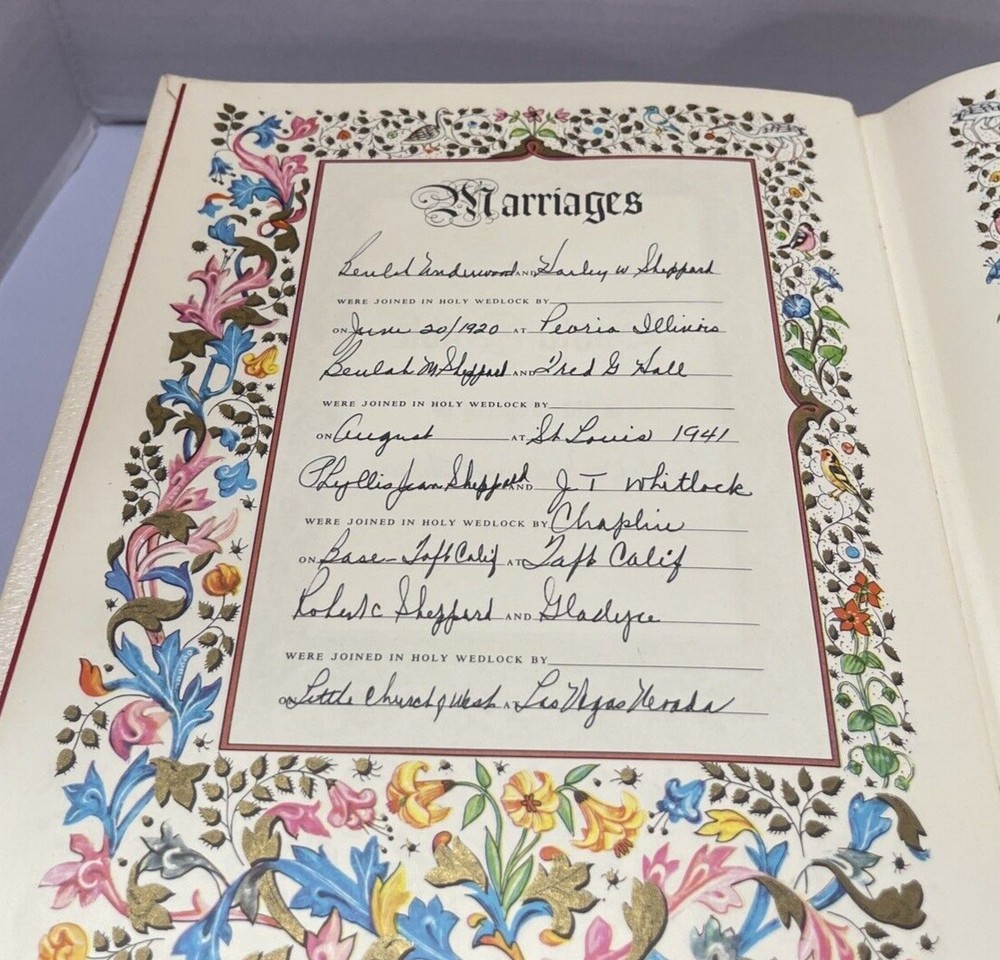 Marriages
Beulah Underwood AND Harley W Sheppard
WERE JOINED IN HOLY WEDLOCK BY
ON June 20/1920 AT Peoria Illinois
Beulah M Sheppard AND Fred G Hall
WERE JOINED IN HOLY WEDLOCK BY
ON August AT St Louis 1941
Phyllis Jean Sheppard AND J T Whitlock
WERE JOINED IN HOLY WEDLOCK BY Chaplin
ON Base-Taft Calif AT Taft Calif
Robert C Sheppard AND Gladyce
WERE JOINED IN HOLY WEDLOCK BY
ON Little Church of West AT Las Vegas Nevada